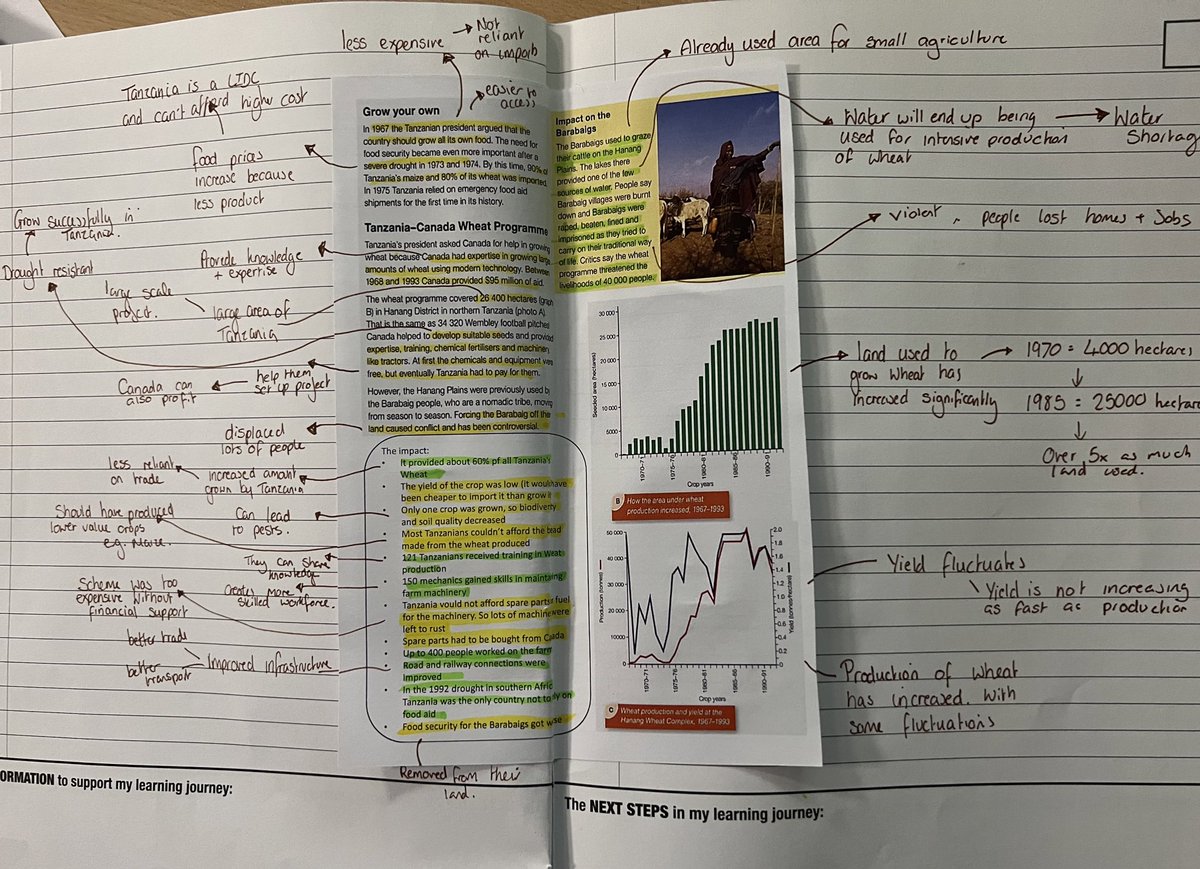 less expensive → Not
reliant
on imports
easier to
access
Already used area for small agriculture
Tanzania is a LIDC
and can't afford higher cost
food prices
increase because
less product
Grow successfully in
Tanzania.
Drought resistant
Provide knowledge
+ expertise
large scale
project.
large area of
Tanzania
help them
set up project
Canada can
also profit
displaced
lots of people
less reliant
on trade
increased amount
grown by Tanzania
Should have produced
lower value crops
e.g.
Can lead
to pests.
They can share
knowledge
Scheme was too
expensive without
financial support
Creates more
skilled workforce.
better trade
better
transport
Improved infrastructure
Removed from their
land.
Grow your own
In 1967 the Tanzanian president argued that the
country should grow all its own food. The need for
food security became even more important after a
severe drought in 1973 and 1974. By this time, 90% of
Tanzania's maize and 80% of its wheat was imported.
In 1975 Tanzania relied on emergency food aid
shipments for the first time in its history.
Tanzania–Canada Wheat Programme
Tanzania's president asked Canada for help in growing
wheat because Canada had expertise in growing large
amounts of wheat using modern technology. Between
1968 and 1993 Canada provided $95 million of aid.
The wheat programme covered 26 400 hectares (graph
B) in Hanang District in northern Tanzania (photo A).
That is the same as 34 320 Wembley football pitches.
Canada helped to develop suitable seeds and provide
expertise, training, chemical fertilisers and machinery
like tractors. At first the chemicals and equipment were
free, but eventually Tanzania had to pay for them.
However, the Hanang Plains were previously used by
the Barabaig people, who are a nomadic tribe, moving
from season to season. Forcing the Barabaig off the
land caused conflict and has been controversial.
The impact:
• It provided about 60% pf all Tanzania's
Wheat
• The yield of the crop was low (it would have
been cheaper to import it than grow it
• Only one crop was grown, so biodiversity
and soil quality decreased
• Most Tanzanians couldn't afford the bread
made from the wheat produced
• 121 Tanzanians received training in Weat
production
• 150 mechanics gained skills in maintaing
farm machinery
• Tanzania vould not afford spare parts/fuel
for the machinery. So lots of machine were
left to rust
• Spare parts had to be bought from Canada
• Up to 400 people worked on the farm
• Road and railway connections were
Improved
• In the 1992 drought in southern Africa
Tanzania was the only country not to rely on
food aid
• Food security for the Barabaigs got worse
Impact on the
Barabaigs
The Barabaigs used to graze
their cattle on the Hanang
Plains. The lakes there
provided one of the few
sources of water. People say
Barabaig villages were burnt
down and Barabaigs were
raped, beaten, fined and
imprisoned as they tried to
carry on their traditional way
of life. Critics say the wheat
programme threatened the
livelihoods of 40 000 people.
Water will end up being → Water
used for intensive production Shortage
of wheat
violent, people lost homes + Jobs
30 000
25 000
20 000
15 000
10 000
5000
Seeded area (hectares)
1970–71
1975–76
1980–81
1985–86
1990–91
Crop years
B How the area under wheat
production increased, 1967–1993
land used to → 1970 = 4000 hectares
grow wheat has
Increased significantly 1985 = 25000 hectares
Over 5x as much
land used.
50 000
40 000
30 000
20 000
10000
0
Production (tonnes)
2.0
1.8
1.6
1.4
1.2
1.0
0.8
0.6
0.4
0.2
0
Yield (tonnes/hectare)
1970–71
1975–76
1980–81
1985–86
1990–91
Crop years
C Wheat production and yield at the
Hanang Wheat Complex, 1967–1993
Yield fluctuates
Yield is not increasing
as fast as production
Production of wheat
has increased. with
some fluctuations
ORMATION to support my learning journey:
The NEXT STEPS in my learning journey: